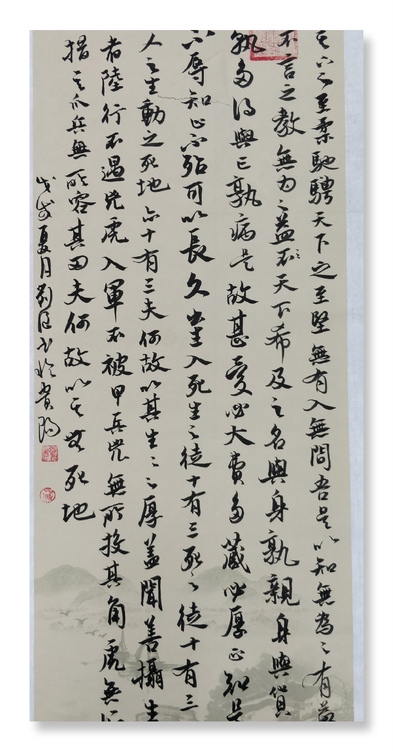 天下之至柔馳騁天下之至堅無有入無間吾是以知無為之有益
不言之教無為之益不天下希及之名與身孰親身與貨
孰多得與亡孰病是故甚愛必大費多藏必厚亡知足
不辱知止不殆可以長久出生入死生之徒十有三死之徒十有三
人之生動之死地亦十有三夫何故以其生生之厚蓋聞善攝生
者陸行不遇兕虎入軍不被甲兵兕無所投其角虎無所
措其爪兵無所容其刃夫何故以其無死地
戊戌夏月劉書於貴陽